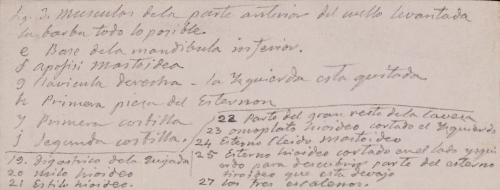 fig. 3. Musculos dela parte anterior del cuello levantada
la barba todo lo posible.
e Base dela mandibula inferior.
f apofisi Mastoidea
g Clavicula derecha - la Yzquierda esta quitada
h Primera pieza del Esternon
y Primera costilla
j Segunda costilla.
19. Digastrico dela Quijada
20 Milo hioideo
21 Estilo hioideo.
22 Parte del gran recto dela Cavera
23 omoplato hioideo cortado el Yzquierdo
24 Esterno Cleido Mastoideo
25 Esterno hioideo cortado en el lado yzqui
erdo para descubrir parte del esterno
tiroideo que esta devajo
27 Los tres escalenos.